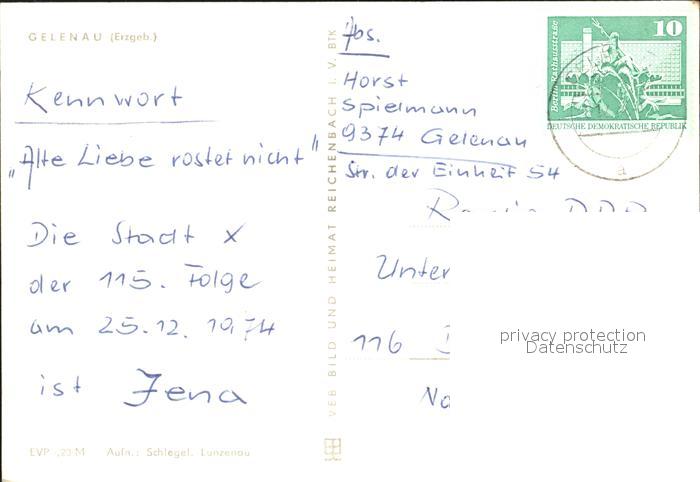 GELENAU (Erzgeb.)
Kennwort
„Alte Liebe rostet nicht"
Die Stadt X
der 115. Folge
am 25.12.1974
ist Jena
EVP -,20 M Aufn.: Schlegel, Lunzenau
VEB BILD UND HEIMAT REICHENBACH I. V. BfK
Abs.
Horst
Spielmann
9374 Gelenau
Str. der Einheit 54
DDR
Unter
116
10
Berlin, Rathausstraße
DEUTSCHE DEMOKRATISCHE REPUBLIK
a
privacy protection
Datenschutz